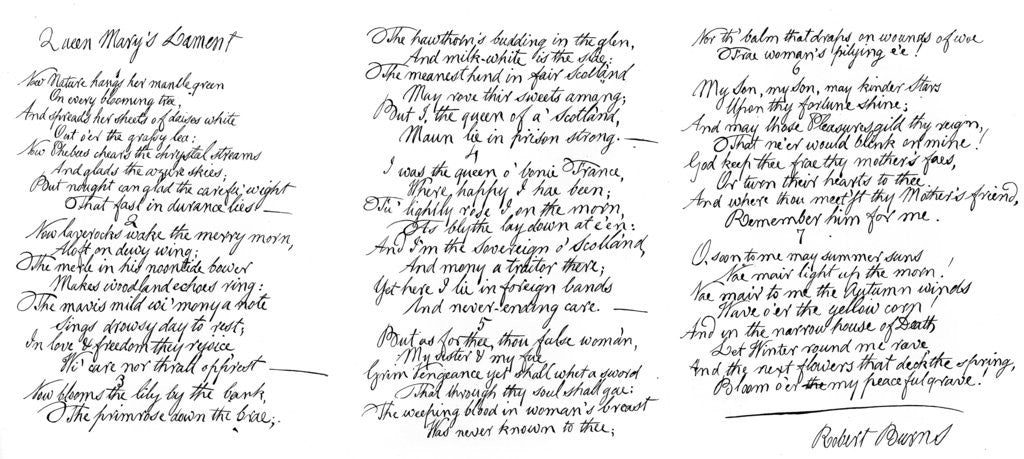 Queen Mary's Lament
Now Nature hangs her mantle green
On every blooming tree,
And spreads her sheets of daises white
Out o'er the grassy lea:
Now Phebus chears the chrystal streams
And glads the azure skies;
But nought can glad the carefu' wight
That fast in durance lies —
2
Now laverocks wake the merry morn,
Aloft on dewy wing;
The merle in his noontide bower
Makes woodland echoes ring:
The mavis mild wi' mony a note
Sings drowsy day to rest;
In love & freedom they rejoice
Wi' care nor thrall opprest —
3
Now blooms the lily by the bank,
The primrose down the brae;
The hawthorn's budding in the glen,
And milk-white is the slae;
The meanest hind in fair Scotland
May rove thir sweets amang;
But I, the queen of a' Scotland,
Maun lie in prison strang. —
4
I was the queen o' bonie France,
Where, happy I hae been;
Fu' lightly rose I on the morn,
As blythe lay down at e'en:
And I'm the sovereign o' Scotland,
And mony a traitor there;
Yet here I lie in foreign bands
And never-ending care. —
5
But as for thee, thou false woman,
My sister & my fae
Grim Vengeance yet shall whet a sword
That through thy soul shall gae:
The weeping blood in woman's breast
Was never known to thee;
Nor th' balm that draps on wounds of woe
Frae woman's pitying e'e!
6
My Son, my Son, may kinder Stars
Upon thy fortune shine;
And may those Pleasures gild thy reign,
That ne'er would blink on mine!
God keep thee frae thy mother's faes,
Or turn their hearts to thee
And where thou meet'st thy Mother's friend,
Remember him for me.
7
O, soon to me may summer suns
Nae mair light up the morn!
Nae mair to me the Autumn winds
Wave o'er the yellow corn
And in the narrow house of Death
Let Winter round me rave
And the next flowers that deck the spring,
Bloom o'er my peaceful grave!
Robert Burns